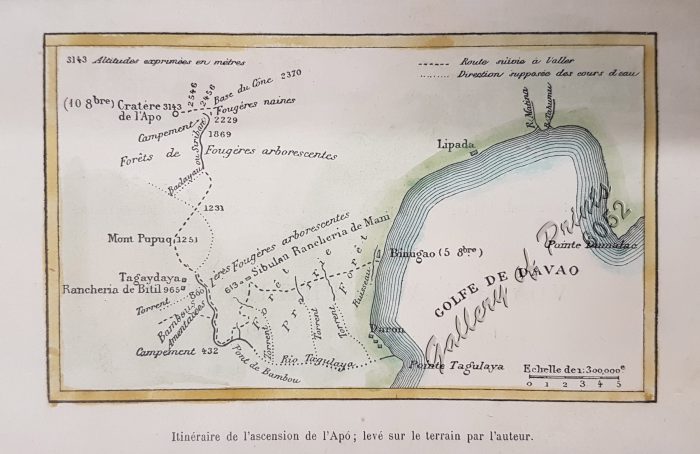 3143 Altitudes exprimées en mètres
Route suivie à l'aller
Direction supposée des cours d'eau
2546
2456
Base du Cône 2370
(10 8bre) Cratère 3143
de l'Apo
Fougères naines
2229
Campement
1869
Forêts de Fougères arborescentes
Baclayau ou Siriban
R. Matina
Lipada
1231
Mont Pupuq 1251
1ères Fougères arborescentes
Sibulan Rancheria de Mani
613
Binugao (5 8bre)
Pointe Dumalac
Tagaydaya
Rancheria de Bitil 965
860
Torrent
Bambous
Forêt
Prairie
Forêt
Ruisseau
GOLFE DE DAVAO
Torrent
Torrent
Torrent
Daron
Campement 432
Pont de Bambou
Rio Tagulaya
Pointe Tagulaya
Echelle de 1:300,000e
0 1 2 3 4 5
Gallery of Prints
6052
Itinéraire de l'ascension de l'Apó; levé sur le terrain par l'auteur.